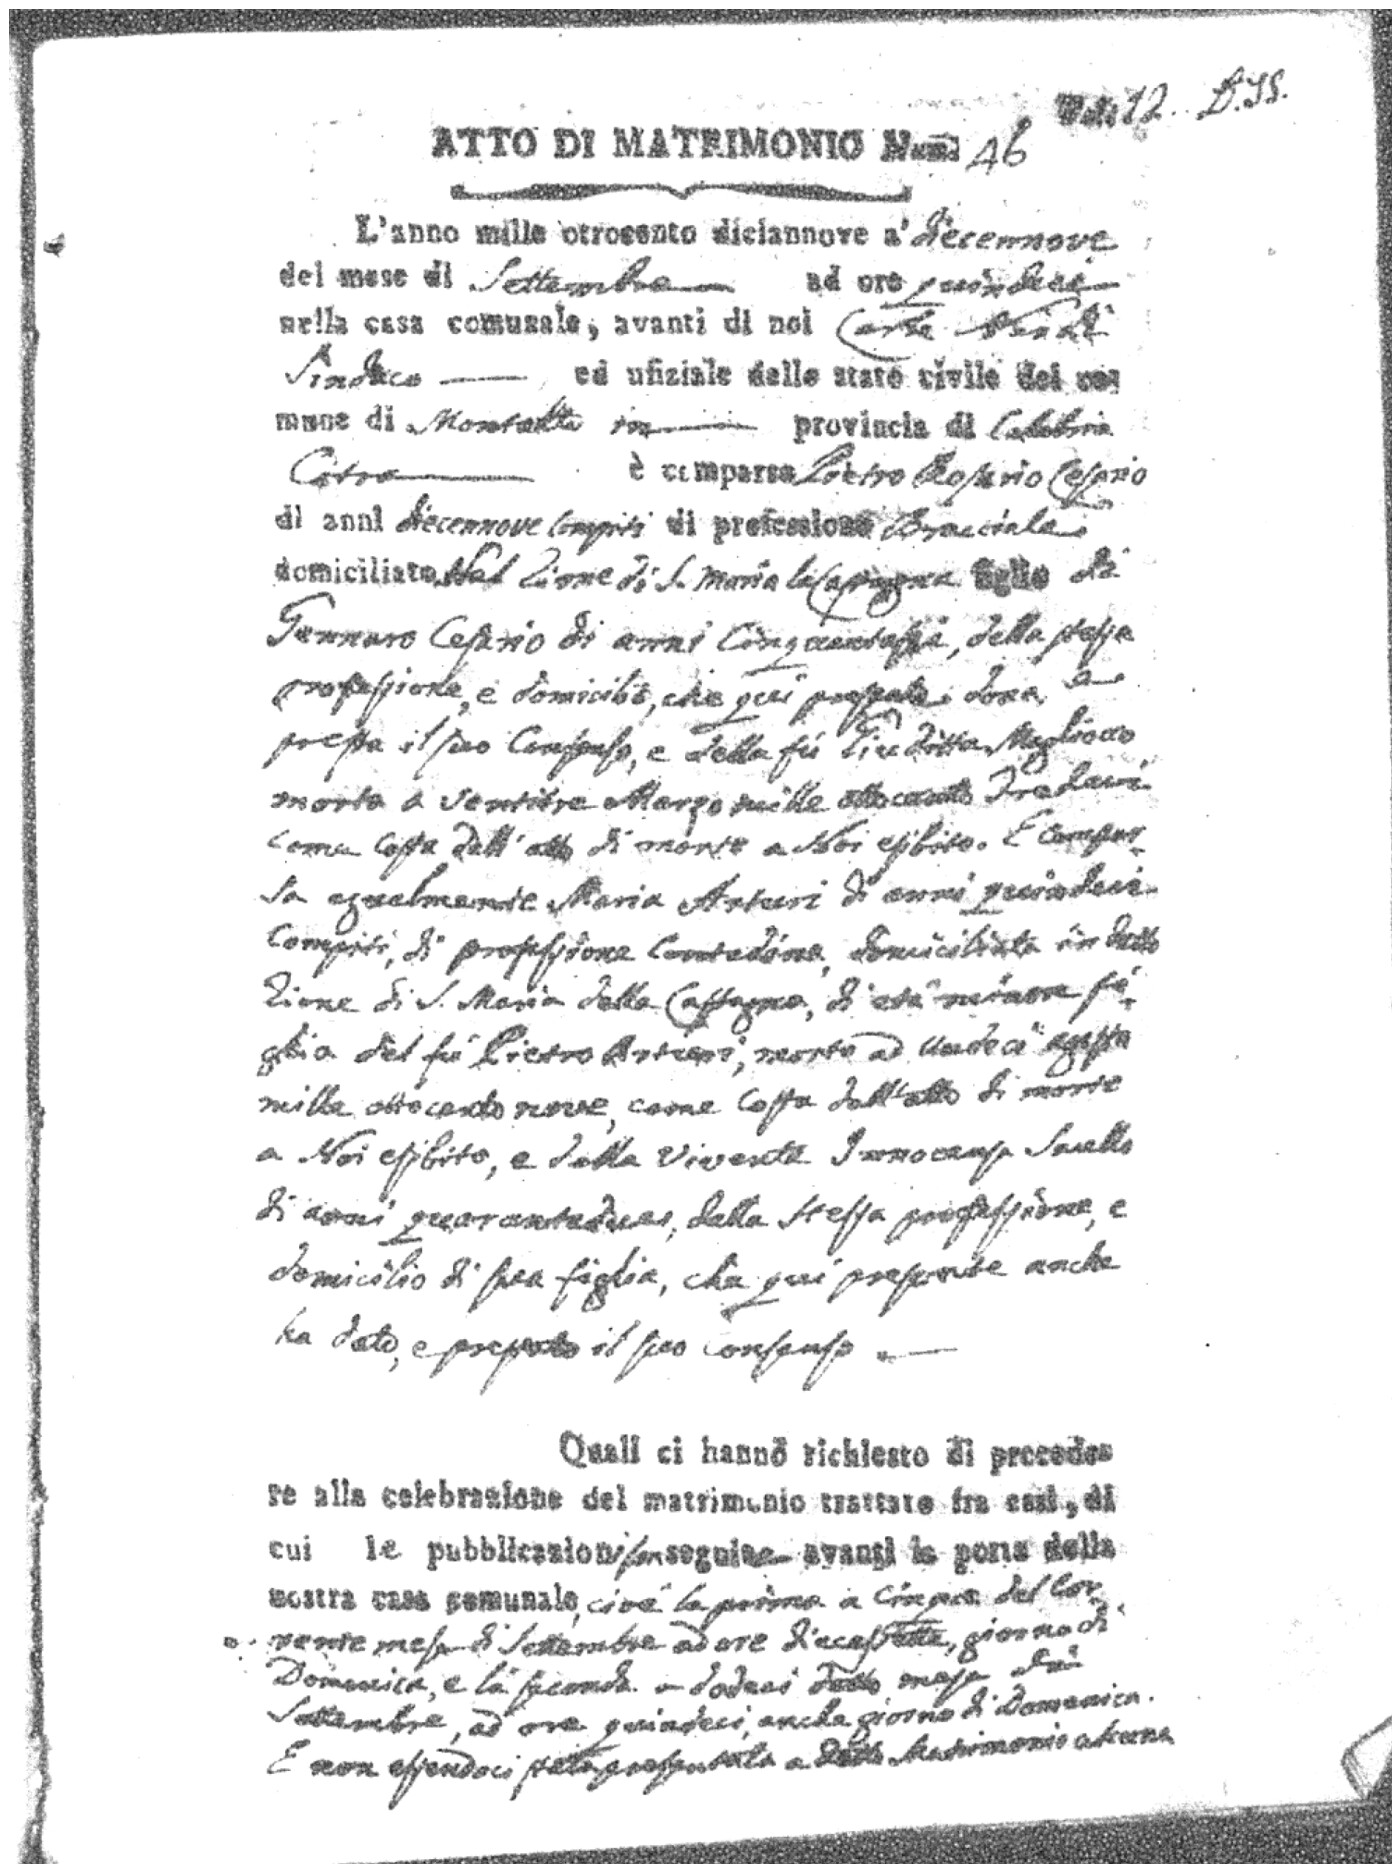 12
ATTO DI MATRIMONIO Num. 46
L'anno mille ottocento diciannove a' diecennove
del mese di Settembre ad ore quindeci
nella casa comunale, avanti di noi
Sindaco ed ufiziale dello stato civile del co-
mune di Montalto in provincia di Calabria
Citra è comparso Pietro Rosario Cesario
di anni diecennove compiti di professione Bracciale
domiciliato Nel Rione di S. Maria la Castagna figlio di
Gennaro Cesario di anni Cinquantasei, della stessa
professione, e domicilio, che qui presente dona e
presta il suo Consenso, e della fù Giuditta Migliocco
morta a ventitre Marzo mille ottocento Tredeci
come Costa dall'atto di morte a Noi esibito. E compar-
sa egualmente Maria Arturi di anni quindeci
Compiti, di professione Contadina, domiciliata in detto
Rione di S. Maria della Castagna, di età minore fi-
glia del fù Pietro Arturi, morto ad Undeci agosto
mille ottocento nove, come Costa dall'atto di morte
a Noi esibito, e della vivente Innocenza
di anni quarantadue, della stessa professione, e
domicilio di sua figlia, che qui presente anche
ha dato, e prestato il suo consenso
Quali ci hanno richiesto di procede-
re alla celebrazione del matrimonio trattato fra essi, di
cui le pubblicazioni son seguite avanti la porta della
nostra casa comunale, cioè la prima a Cinque del Cor-
rente mese di Settembre ad ore diecessette, giorno di
Domenica, e la seconda a dodeci detto mese di
Settembre, ad ore quindeci, anche giorno di Domenica.
E non essendoci stata presentata a detto Matrimonio alcuna